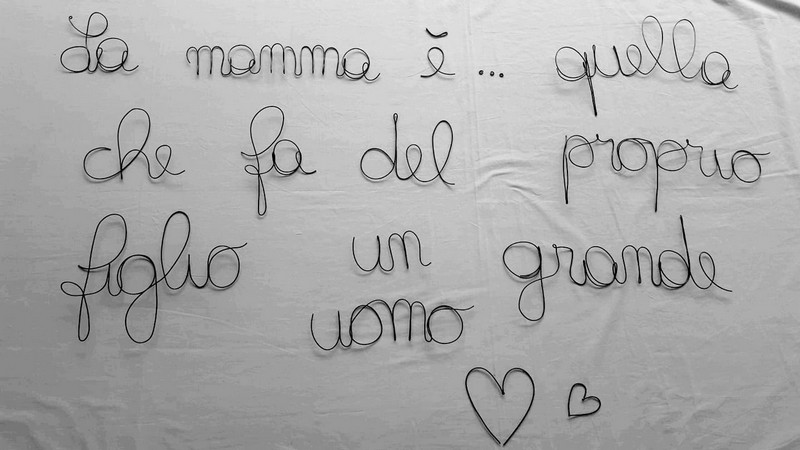 La mamma è... quella
che fa del proprio
figlio un grande
uomo